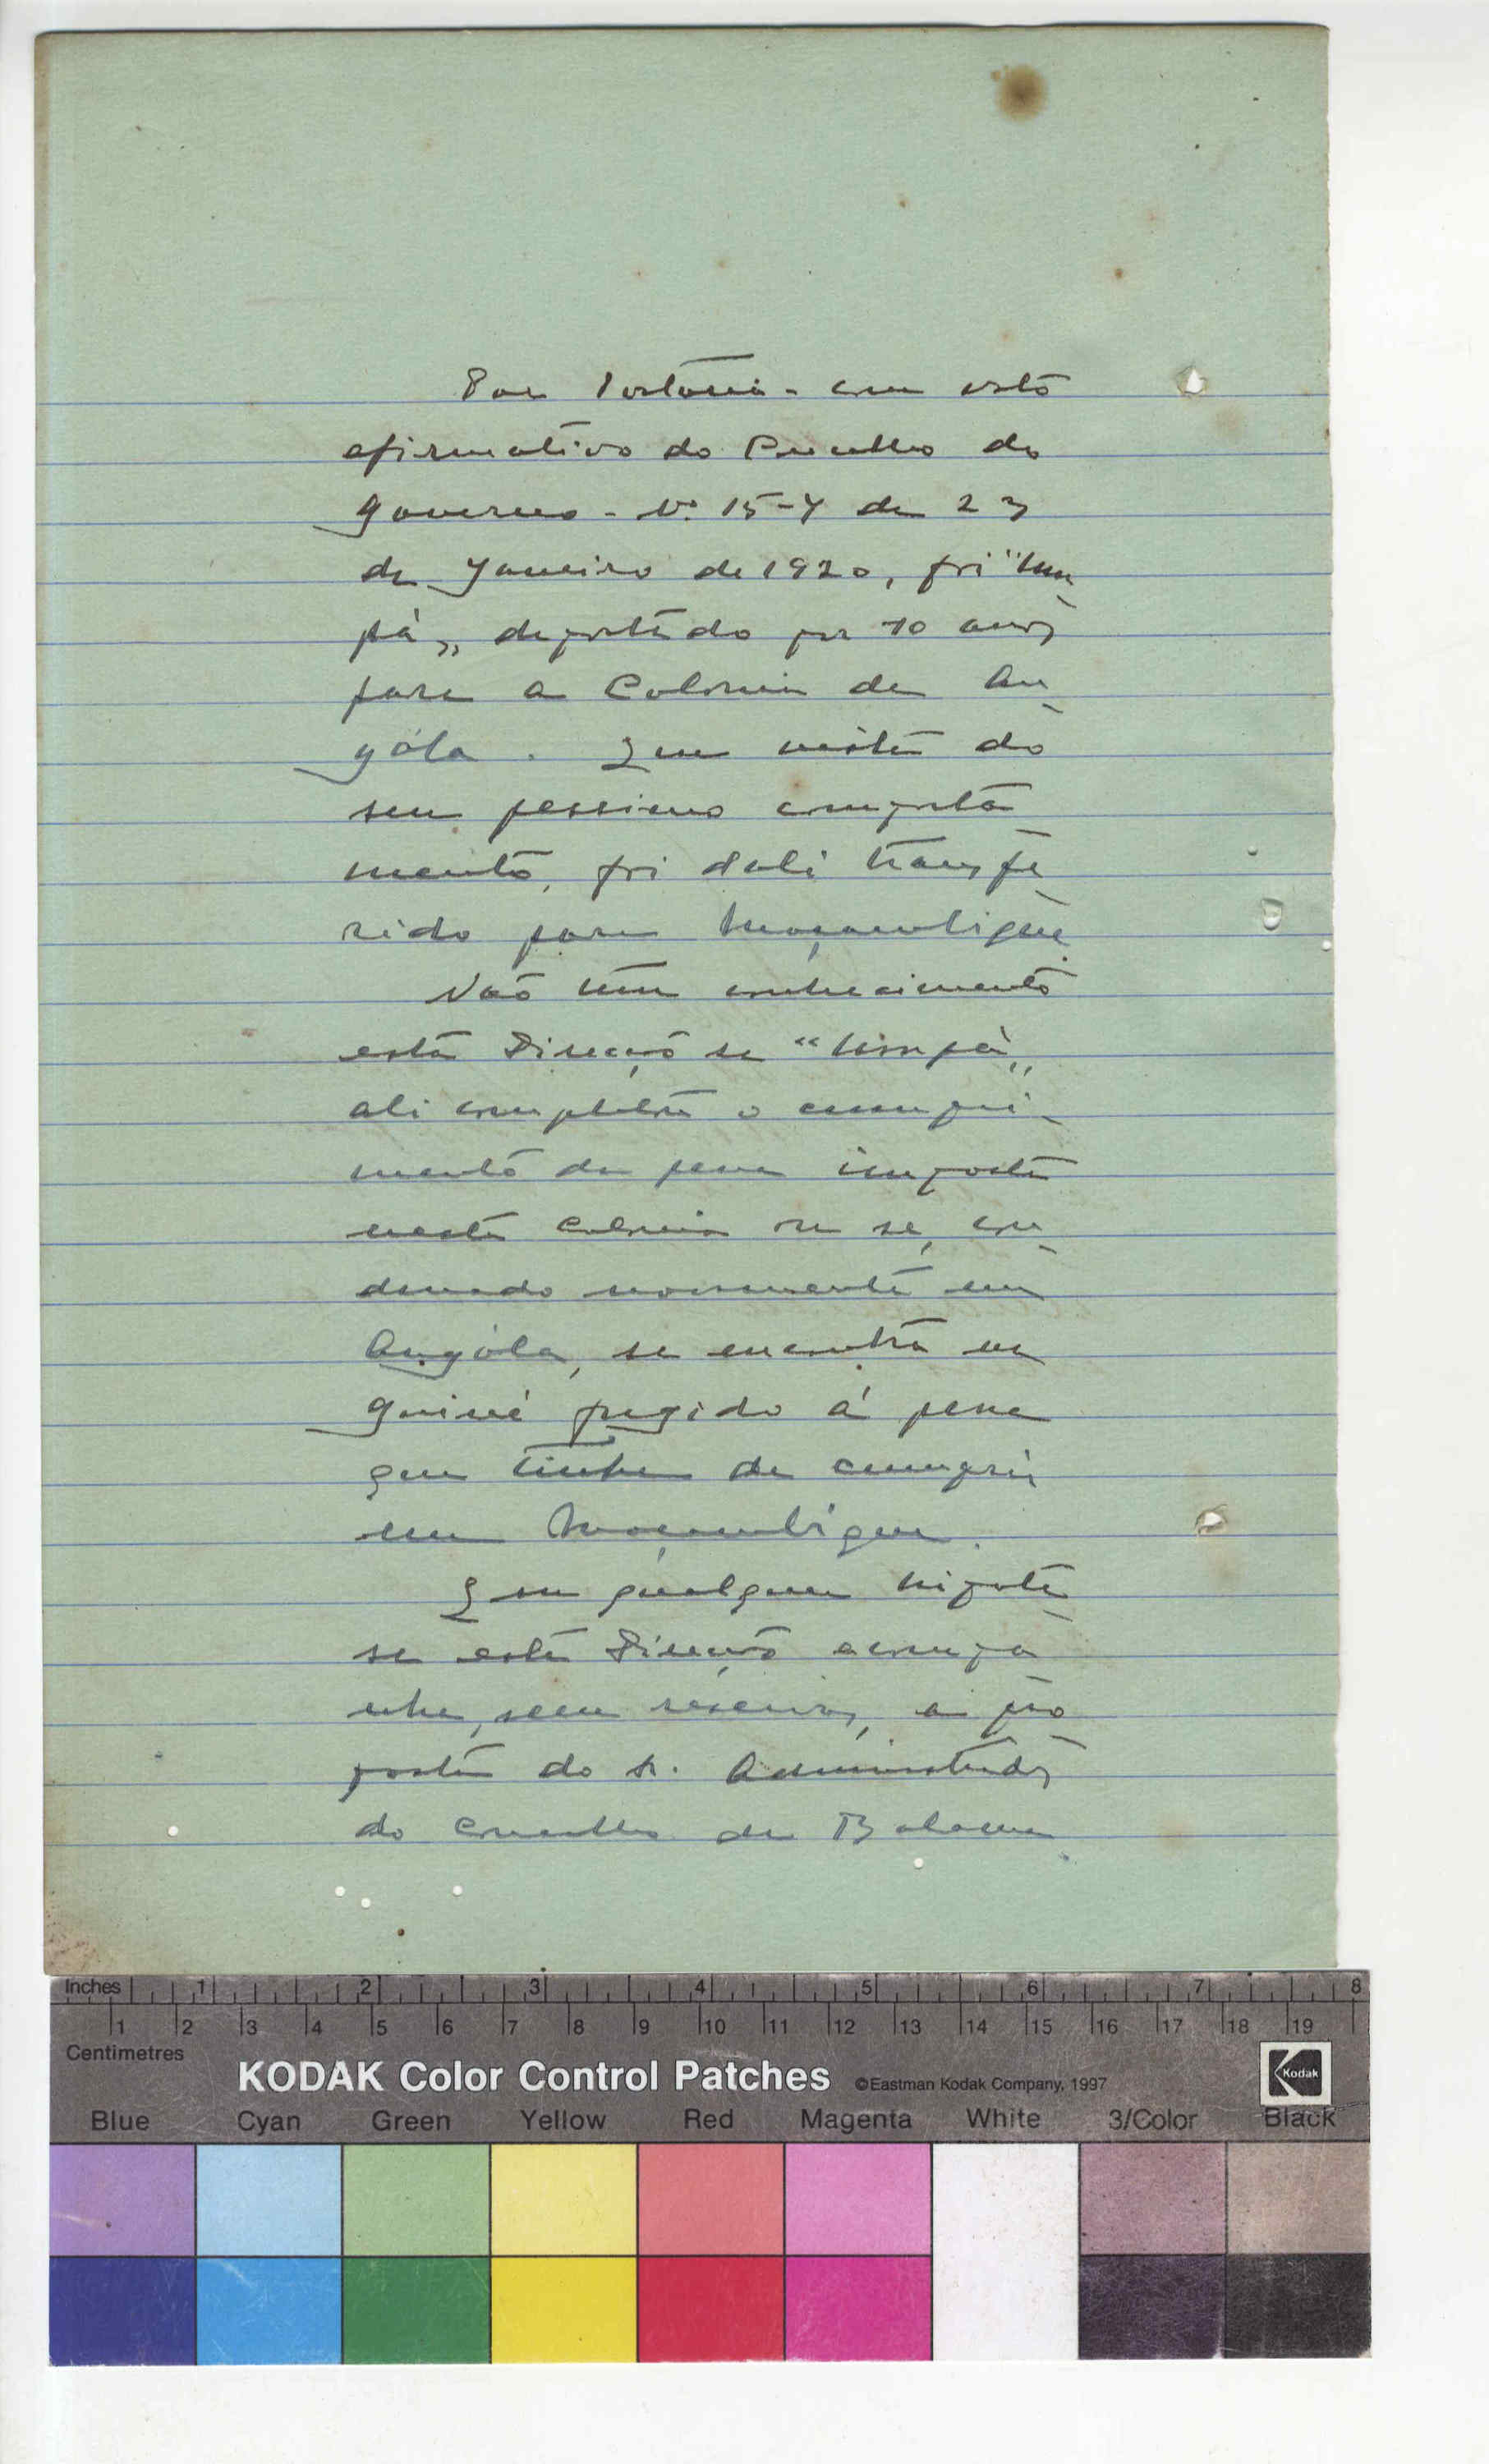 Por Portaria - com voto
afirmativo do Concelho do
Governo - Nº 15-Y de 23
de Janeiro de 1920, foi "Um
pá„ deportado por 10 anos
para a Colonia de An-
góla. Em vista do
seu pessimo comporta
mento, foi dali transfe-
rido para Moçambique.
Não tem conhecimento
esta Direcção se "Umpá„
ali completou o cumpri-
mento da pena imposta
nesta colonia ou se, con-
denado novamente em
Angola, se encontra na
Guiné fugido á pena
que tinha de cumprir
em Moçambique.
Em qualquer hipote-
se esta Direcção acompa
nha, sem reservas, a pro-
posta do Sr. Administrador
do concelho de Bolama.
Inches 1 2 3 4 5 6 7 8
1 2 3 4 5 6 7 8 9 10 11 12 13 14 15 16 17 18 19
Centimetres
KODAK Color Control Patches ©Eastman Kodak Company, 1997 Kodak
Blue Cyan Green Yellow Red Magenta White 3/Color Black